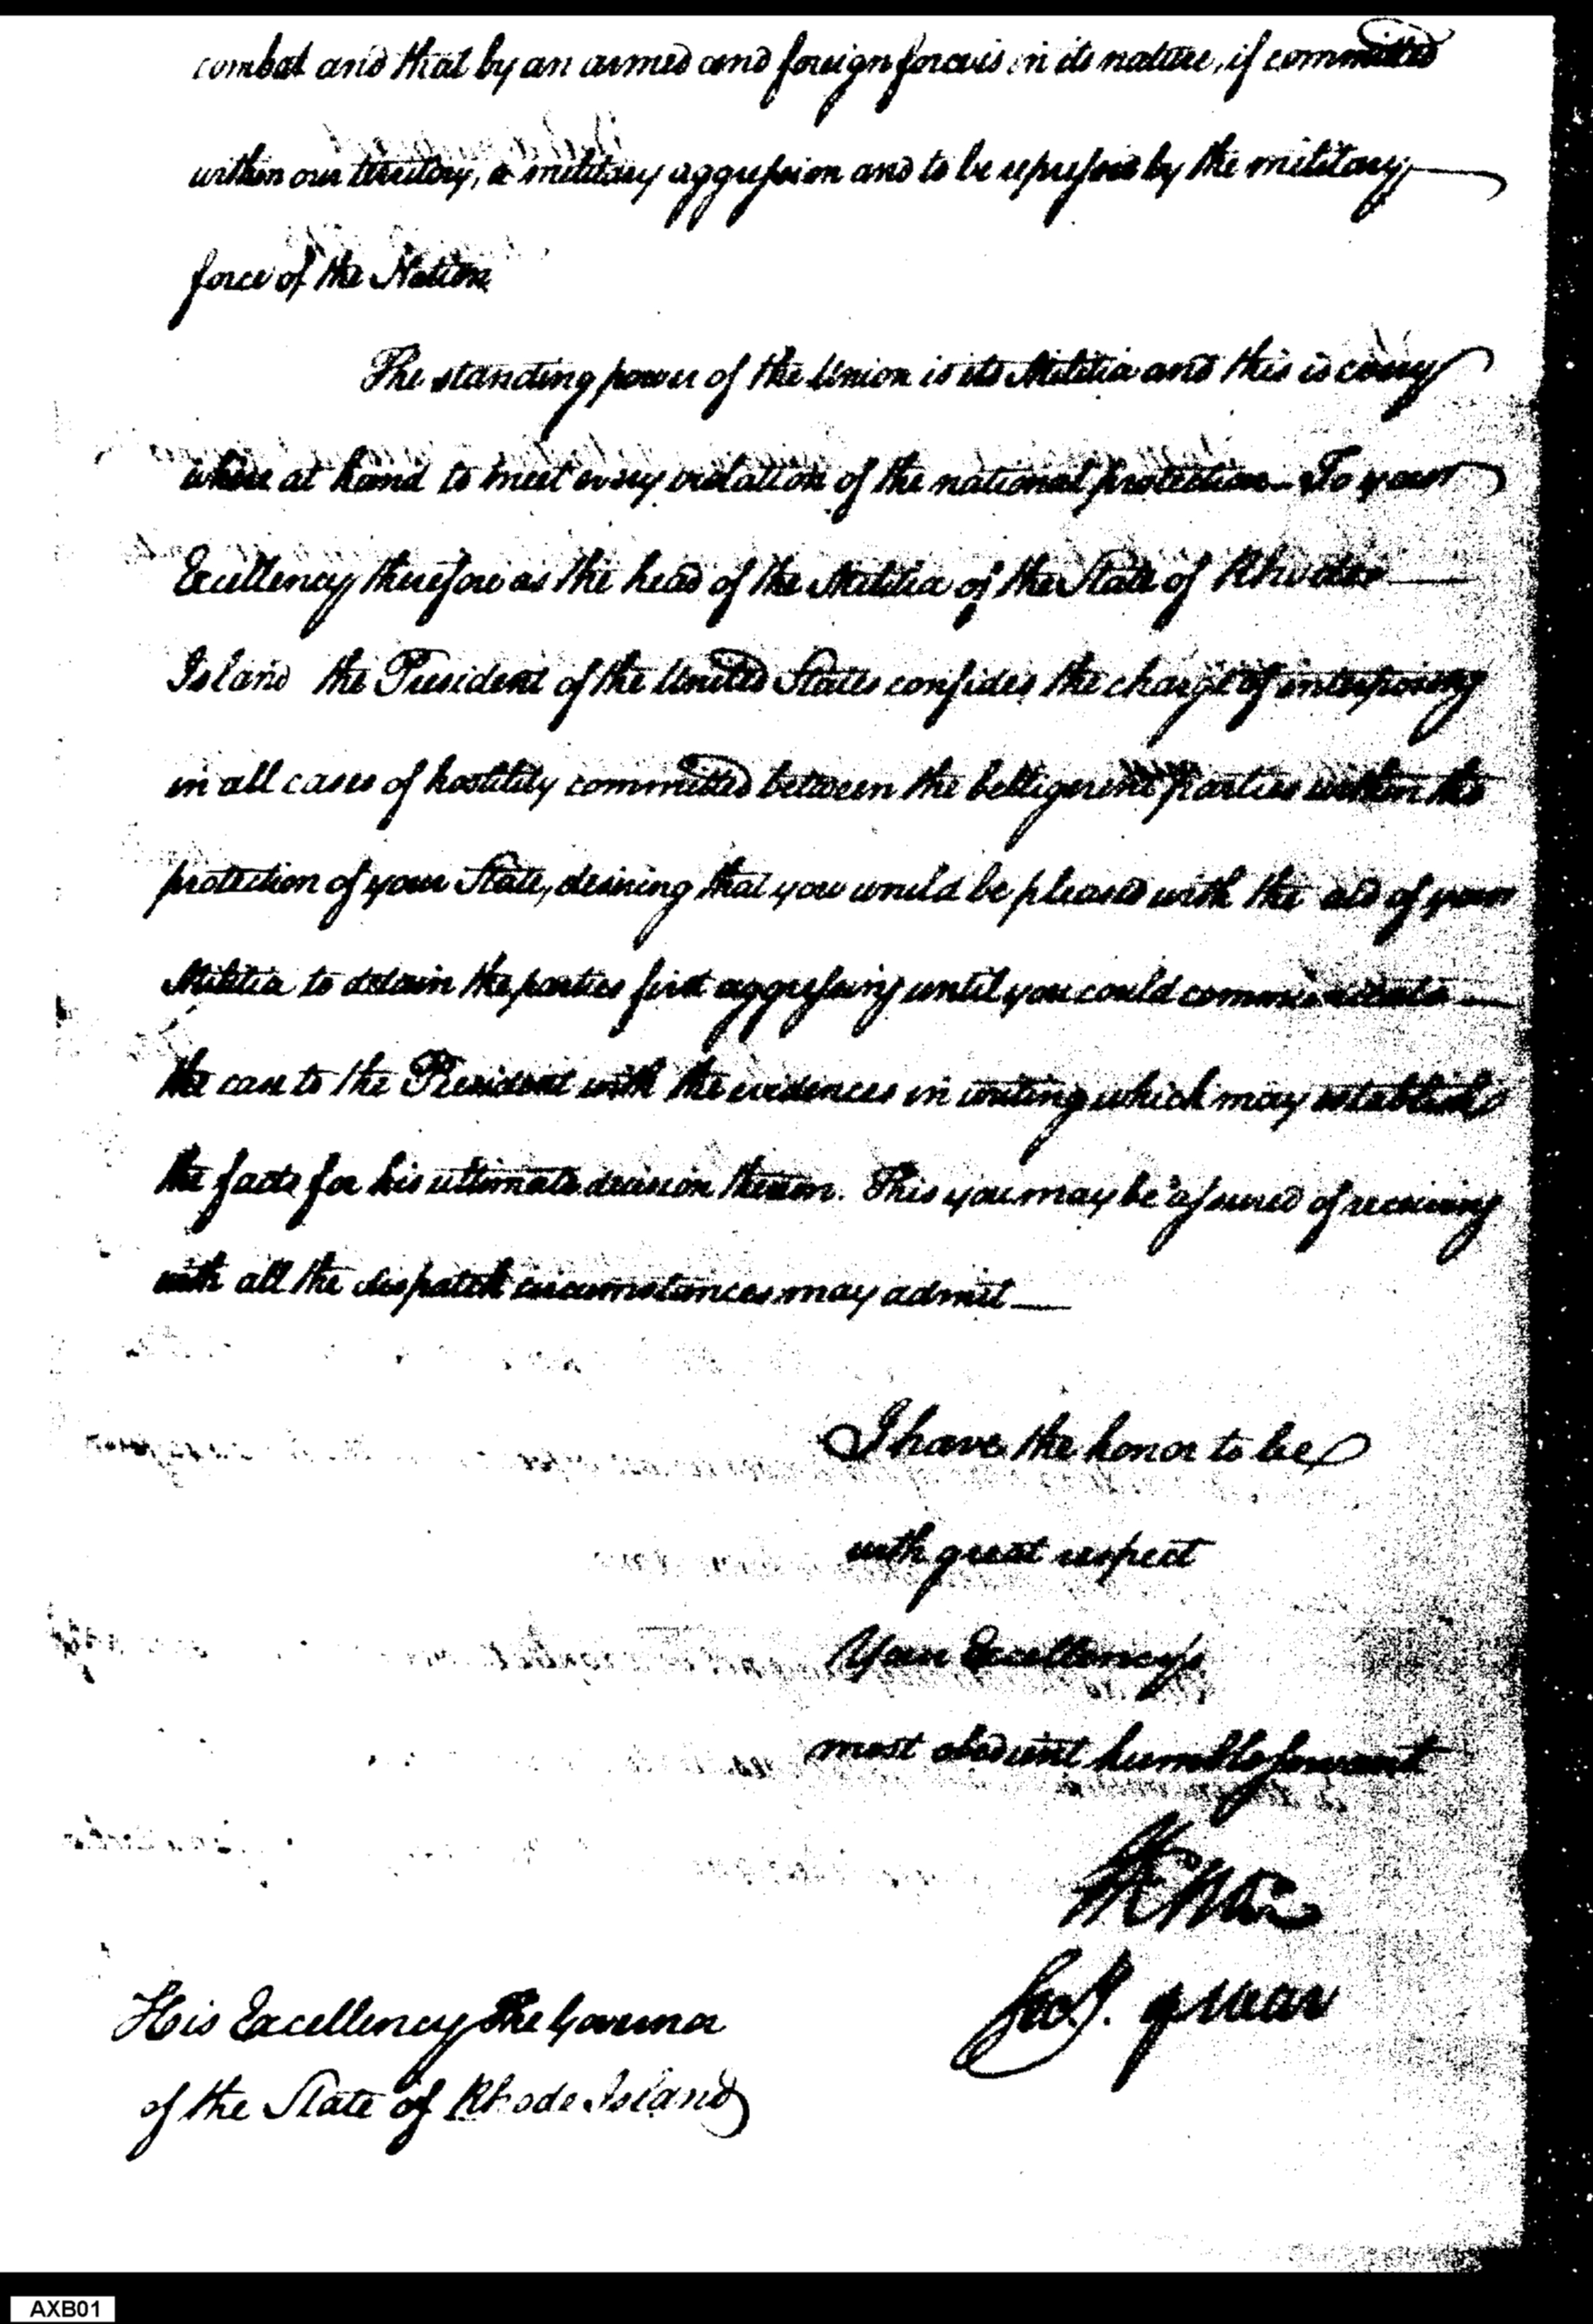 combat and that by an armed and foreign force is in its nature, if committed
within our territory, a military aggression and to be repressed by the military
force of the Nation
The standing power of the Union is its Militia and this is every
where at hand to meet every violation of the national protection_ To your
Excellency therefore as the head of the Militia of the State of Rhode
Island the President of the United States confides the charge of interposing
in all cases of hostility committed between the belligerent parties within the
protection of your State, desiring that you would be pleased with the aid of your
Militia to detain the parties first aggressing until you could communicate
the case to the President with the evidences in writing which may establish
the facts for his ultimate decision thereon. This you may be assured of receiving
with all the despatch circumstances may admit_
I have the honor to be
with great respect
Your Excellency's
most obedient humble servant
HKnox
Secy. of War
His Excellency The Governor
of the State of Rhode Island
AXB01